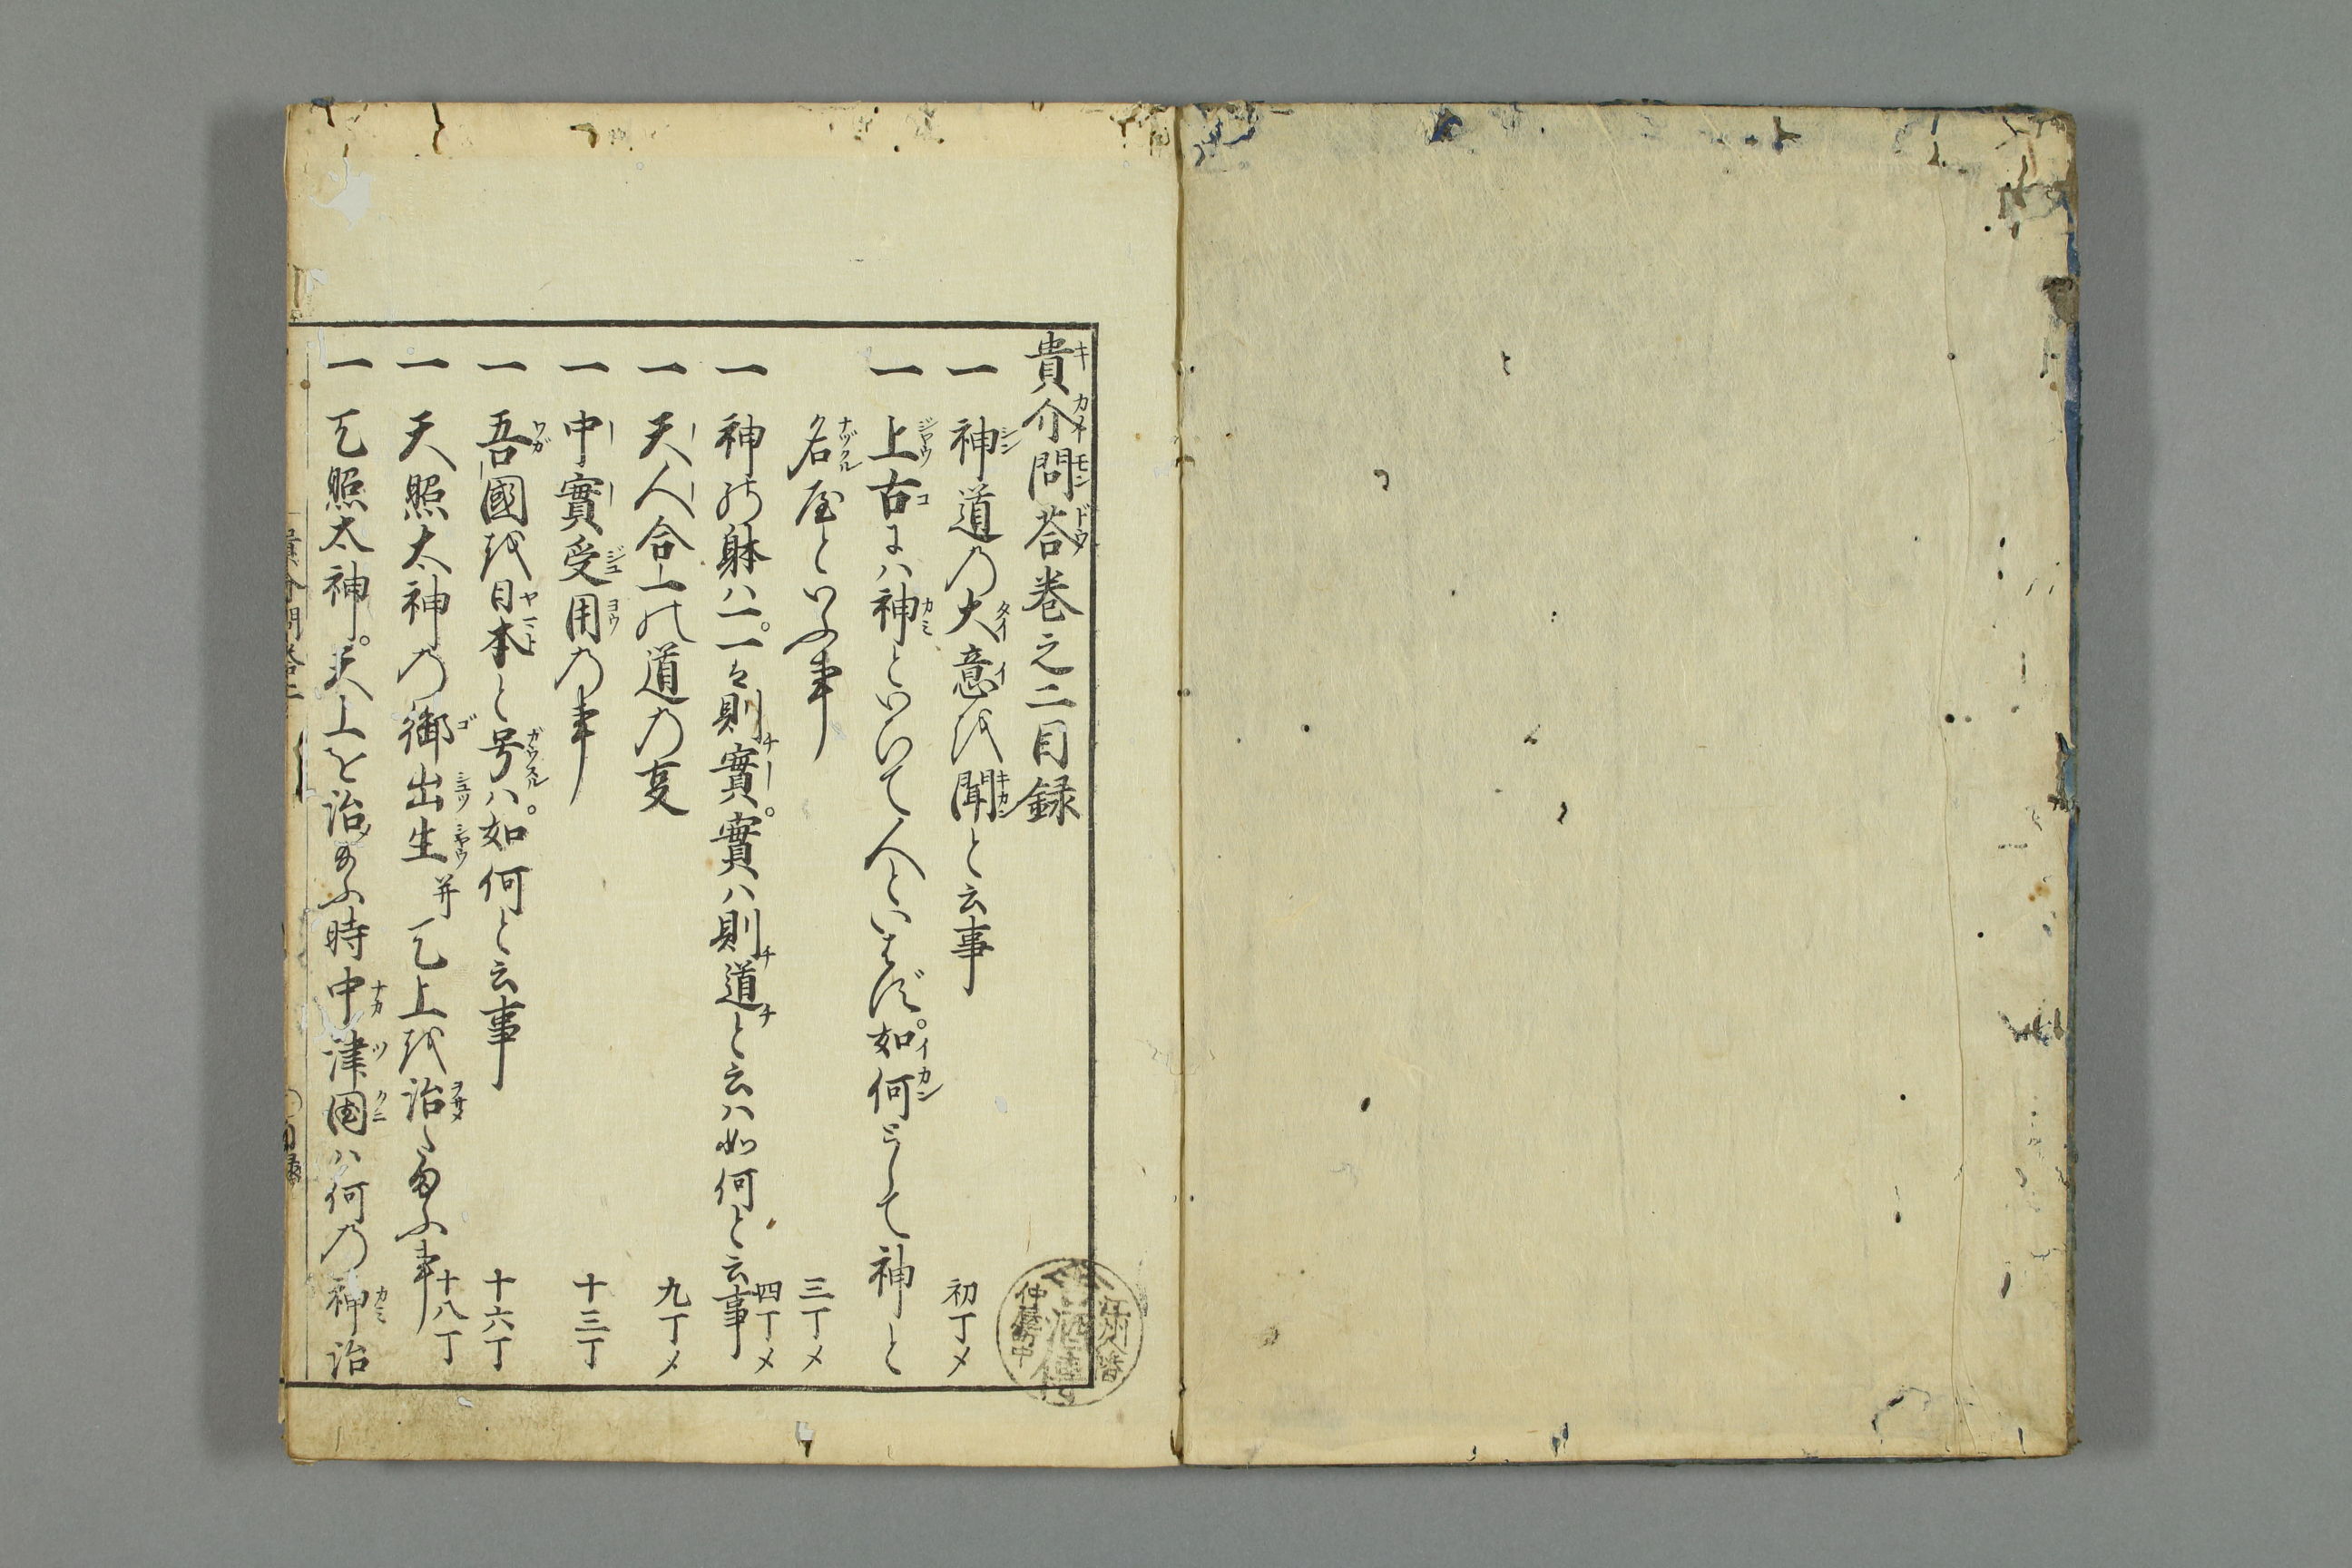 貴介問荅巻之二目録
一 神道乃大意越聞と云事 初丁メ
一 上古よハ神といいて人といはず。如何うして神と
名屋といふ事 三丁メ
一 神能躰ハ一。一は則實。實ハ則道と云ハ如何と云事 四丁メ
一 天人合一能道乃叓 九丁メ
一 中實受用乃事 十三丁
一 吾國越日本と号ハ。如何と云事 十六丁
一 天照太神乃御出生并天上越治たまふ事 十八丁
一 天照太神。天上を治給ふ時中津国ハ何乃神治